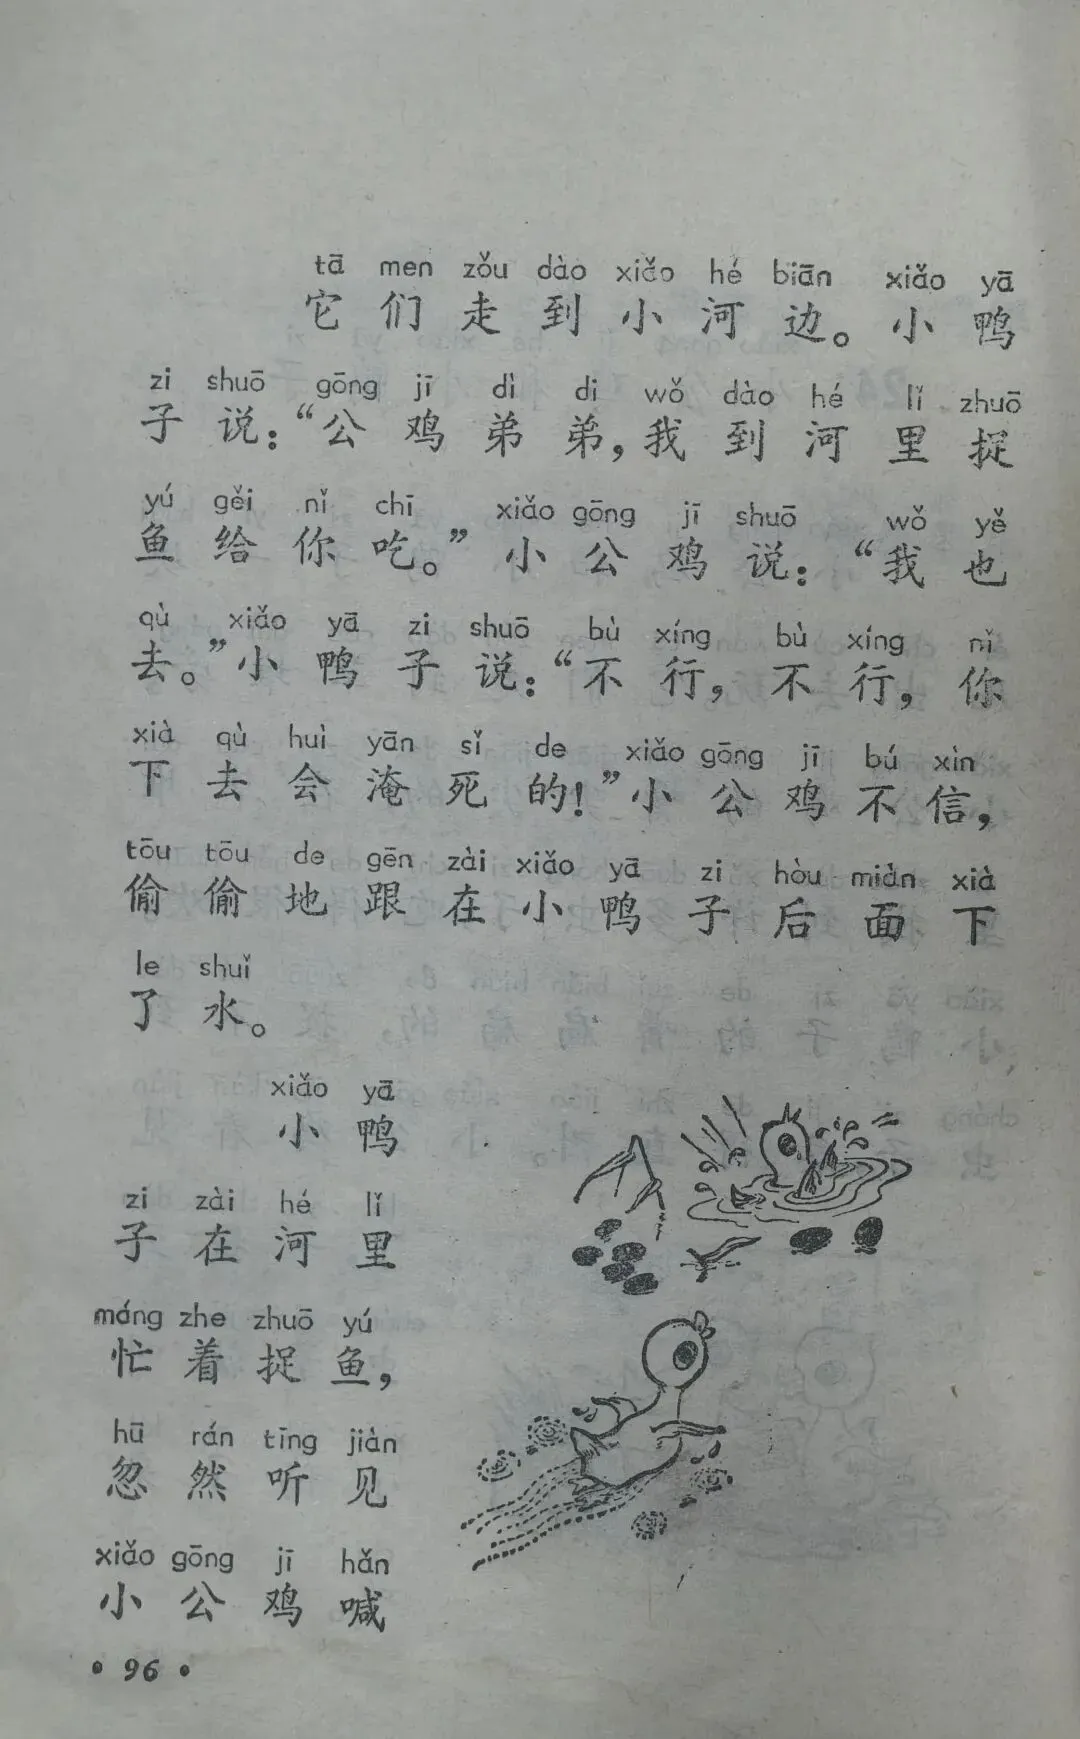 tā men zǒu dào xiǎo hé biān xiǎo yā
它们走到小河边。小鸭
zi shuō gōng jī dì di wǒ dào hé lǐ zhuō
子说：“公鸡弟弟，我到河里捉
yú gěi nǐ chī xiǎo gōng jī shuō wǒ yě
鱼给你吃。”小公鸡说：“我也
qù xiǎo yā zi shuō bù xíng bù xíng nǐ
去。”小鸭子说：“不行，不行，你
xià qù huì yān sǐ de xiǎo gōng jī bú xìn
下去会淹死的！”小公鸡不信，
tōu tōu de gēn zài xiǎo yā zi hòu miàn xià
偷偷地跟在小鸭子后面下
le shuǐ
了水。
xiǎo yā
小鸭
zi zài hé lǐ
子在河里
máng zhe zhuō yú
忙着捉鱼，
hū rán tīng jiàn
忽然听见
xiǎo gōng jī hǎn
小公鸡喊
• 96 •